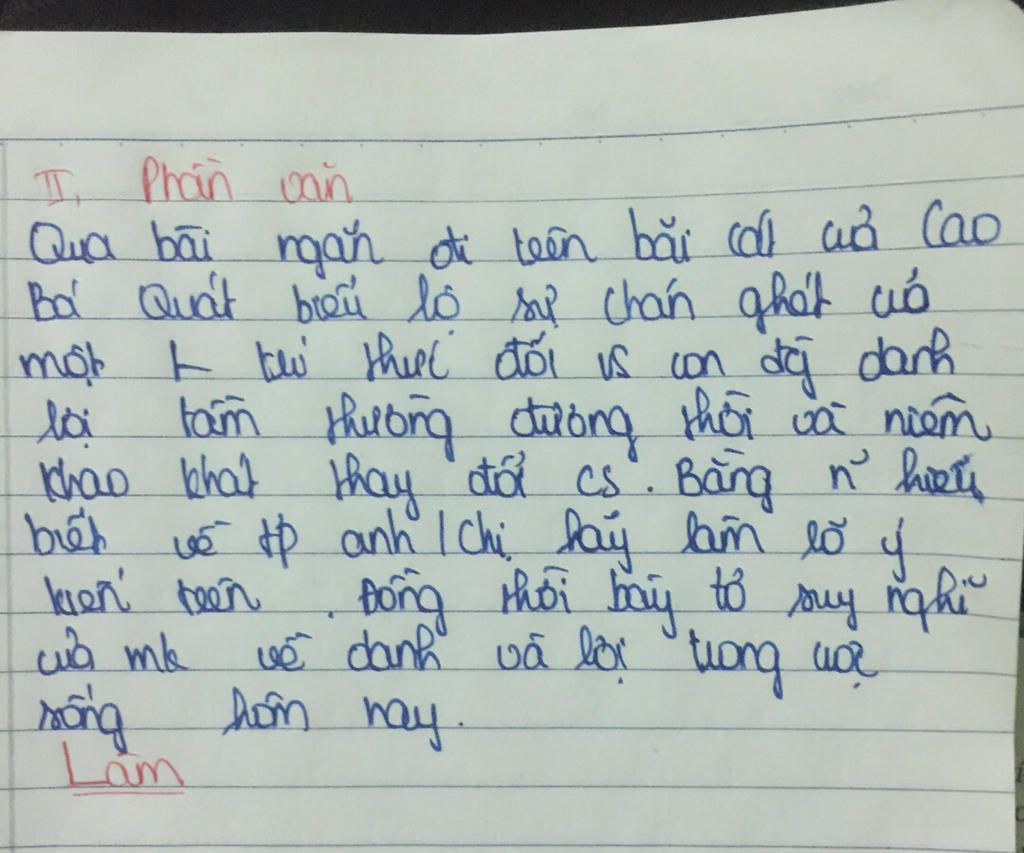 II, Phần văn
Qua bài ngắn đi trên bãi cát của Cao
Bá Quát biểu lộ sự chán ghét của
một trí thức đối vs con đg danh
lợi tầm thường đương thời và niềm
khao khát thay đổi cs. Bằng n~ hiểu
biết về tp anh/Chị hãy làm rõ ý
kiến trên. Đồng thời bày tỏ suy nghĩ
của mk về danh và lợi trong cuộc
sống hôm nay.
Làm